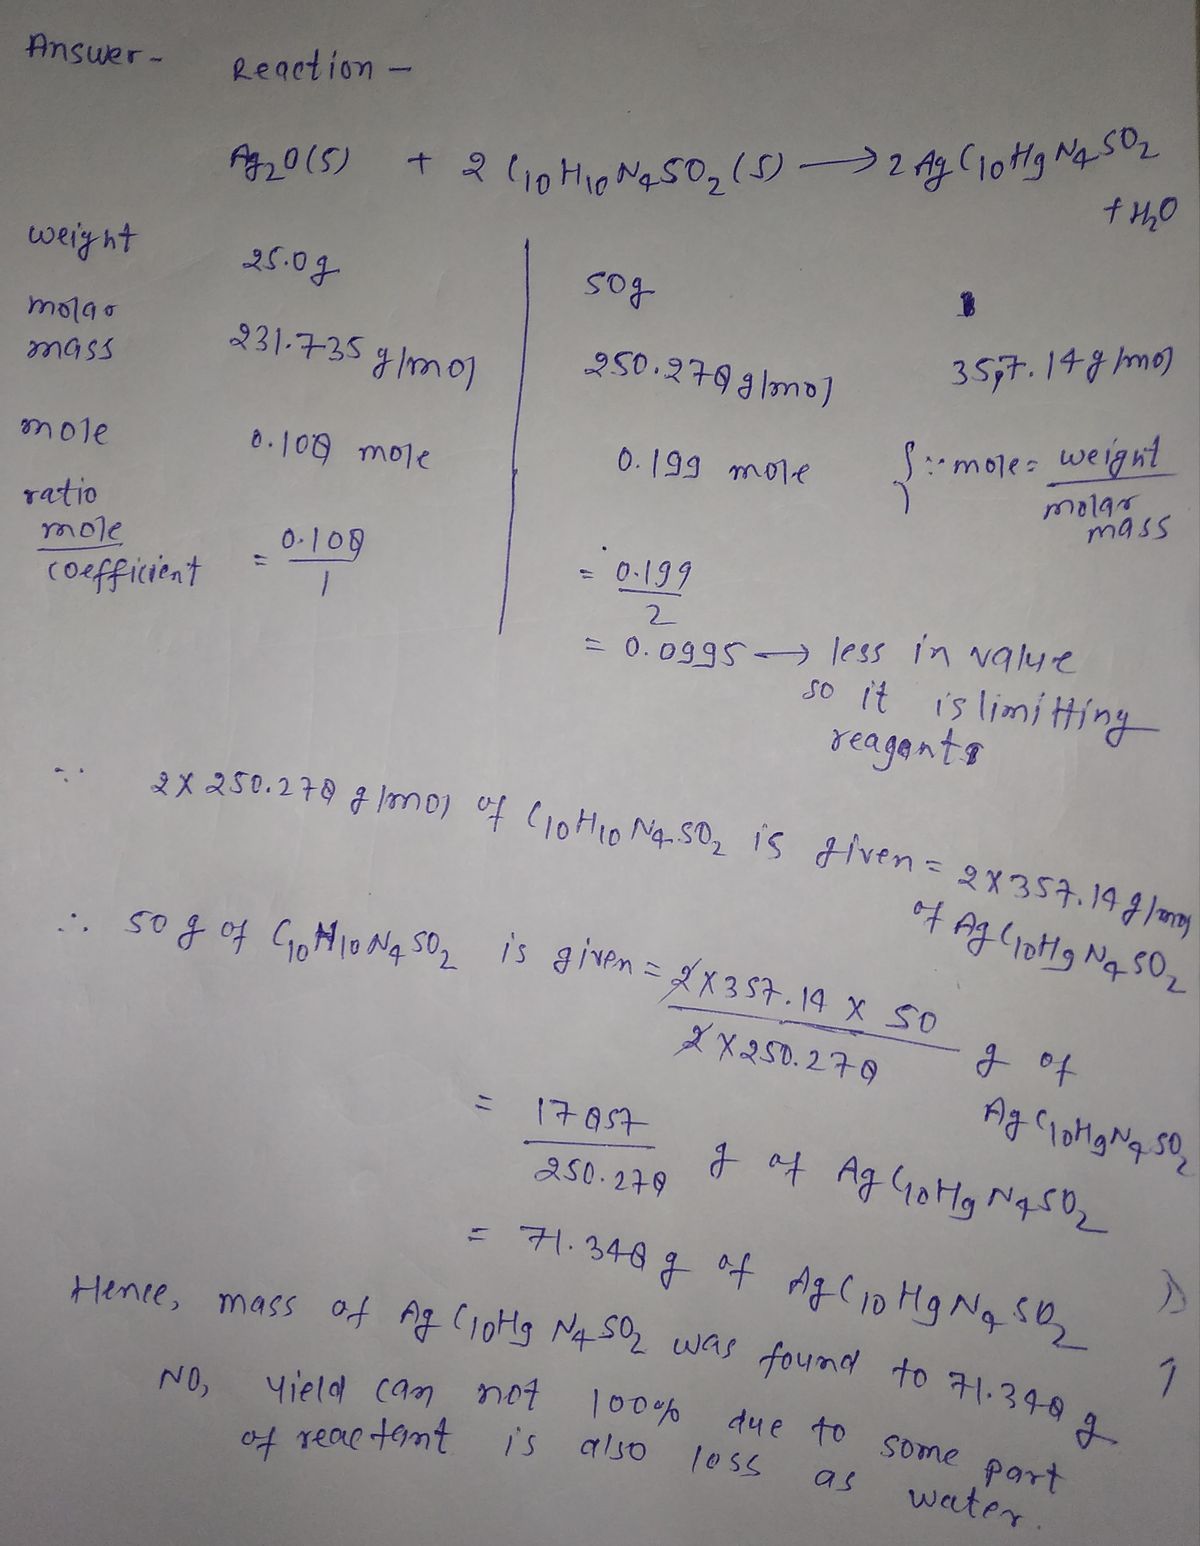 Answer -
Reaction -
Ag₂O(s) + 2 C₁₀H₁₀N₄SO₂(s) ⟶ 2 AgC₁₀H₉N₄SO₂
+ H₂O
weight 25.0g 50g
molar
mass 231.735 g/mol 250.278 g/mol 357.14 g/mol
mole 0.108 mole 0.199 mole { ∵ mole = weight / molar mass
ratio
mole / coefficient = 0.108 / 1 = 0.199 / 2
= 0.0995 ⟶ less in value
so it is limitting
reagent
∵ 2 X 250.278 g/mol of C₁₀H₁₀N₄SO₂ is given = 2 X 357.14 g/mol
of AgC₁₀H₉N₄SO₂
∴ 50 g of C₁₀H₁₀N₄SO₂ is given = 2 X 357.14 X 50 / 2 X 250.278 g of
AgC₁₀H₉N₄SO₂
= 17857 / 250.278 g of AgC₁₀H₉N₄SO₂
= 71.348 g of AgC₁₀H₉N₄SO₂
Hence, mass of AgC₁₀H₉N₄SO₂ was found to 71.348 g
NO, yield can not 100% due to some part
of reactant is also loss as water.